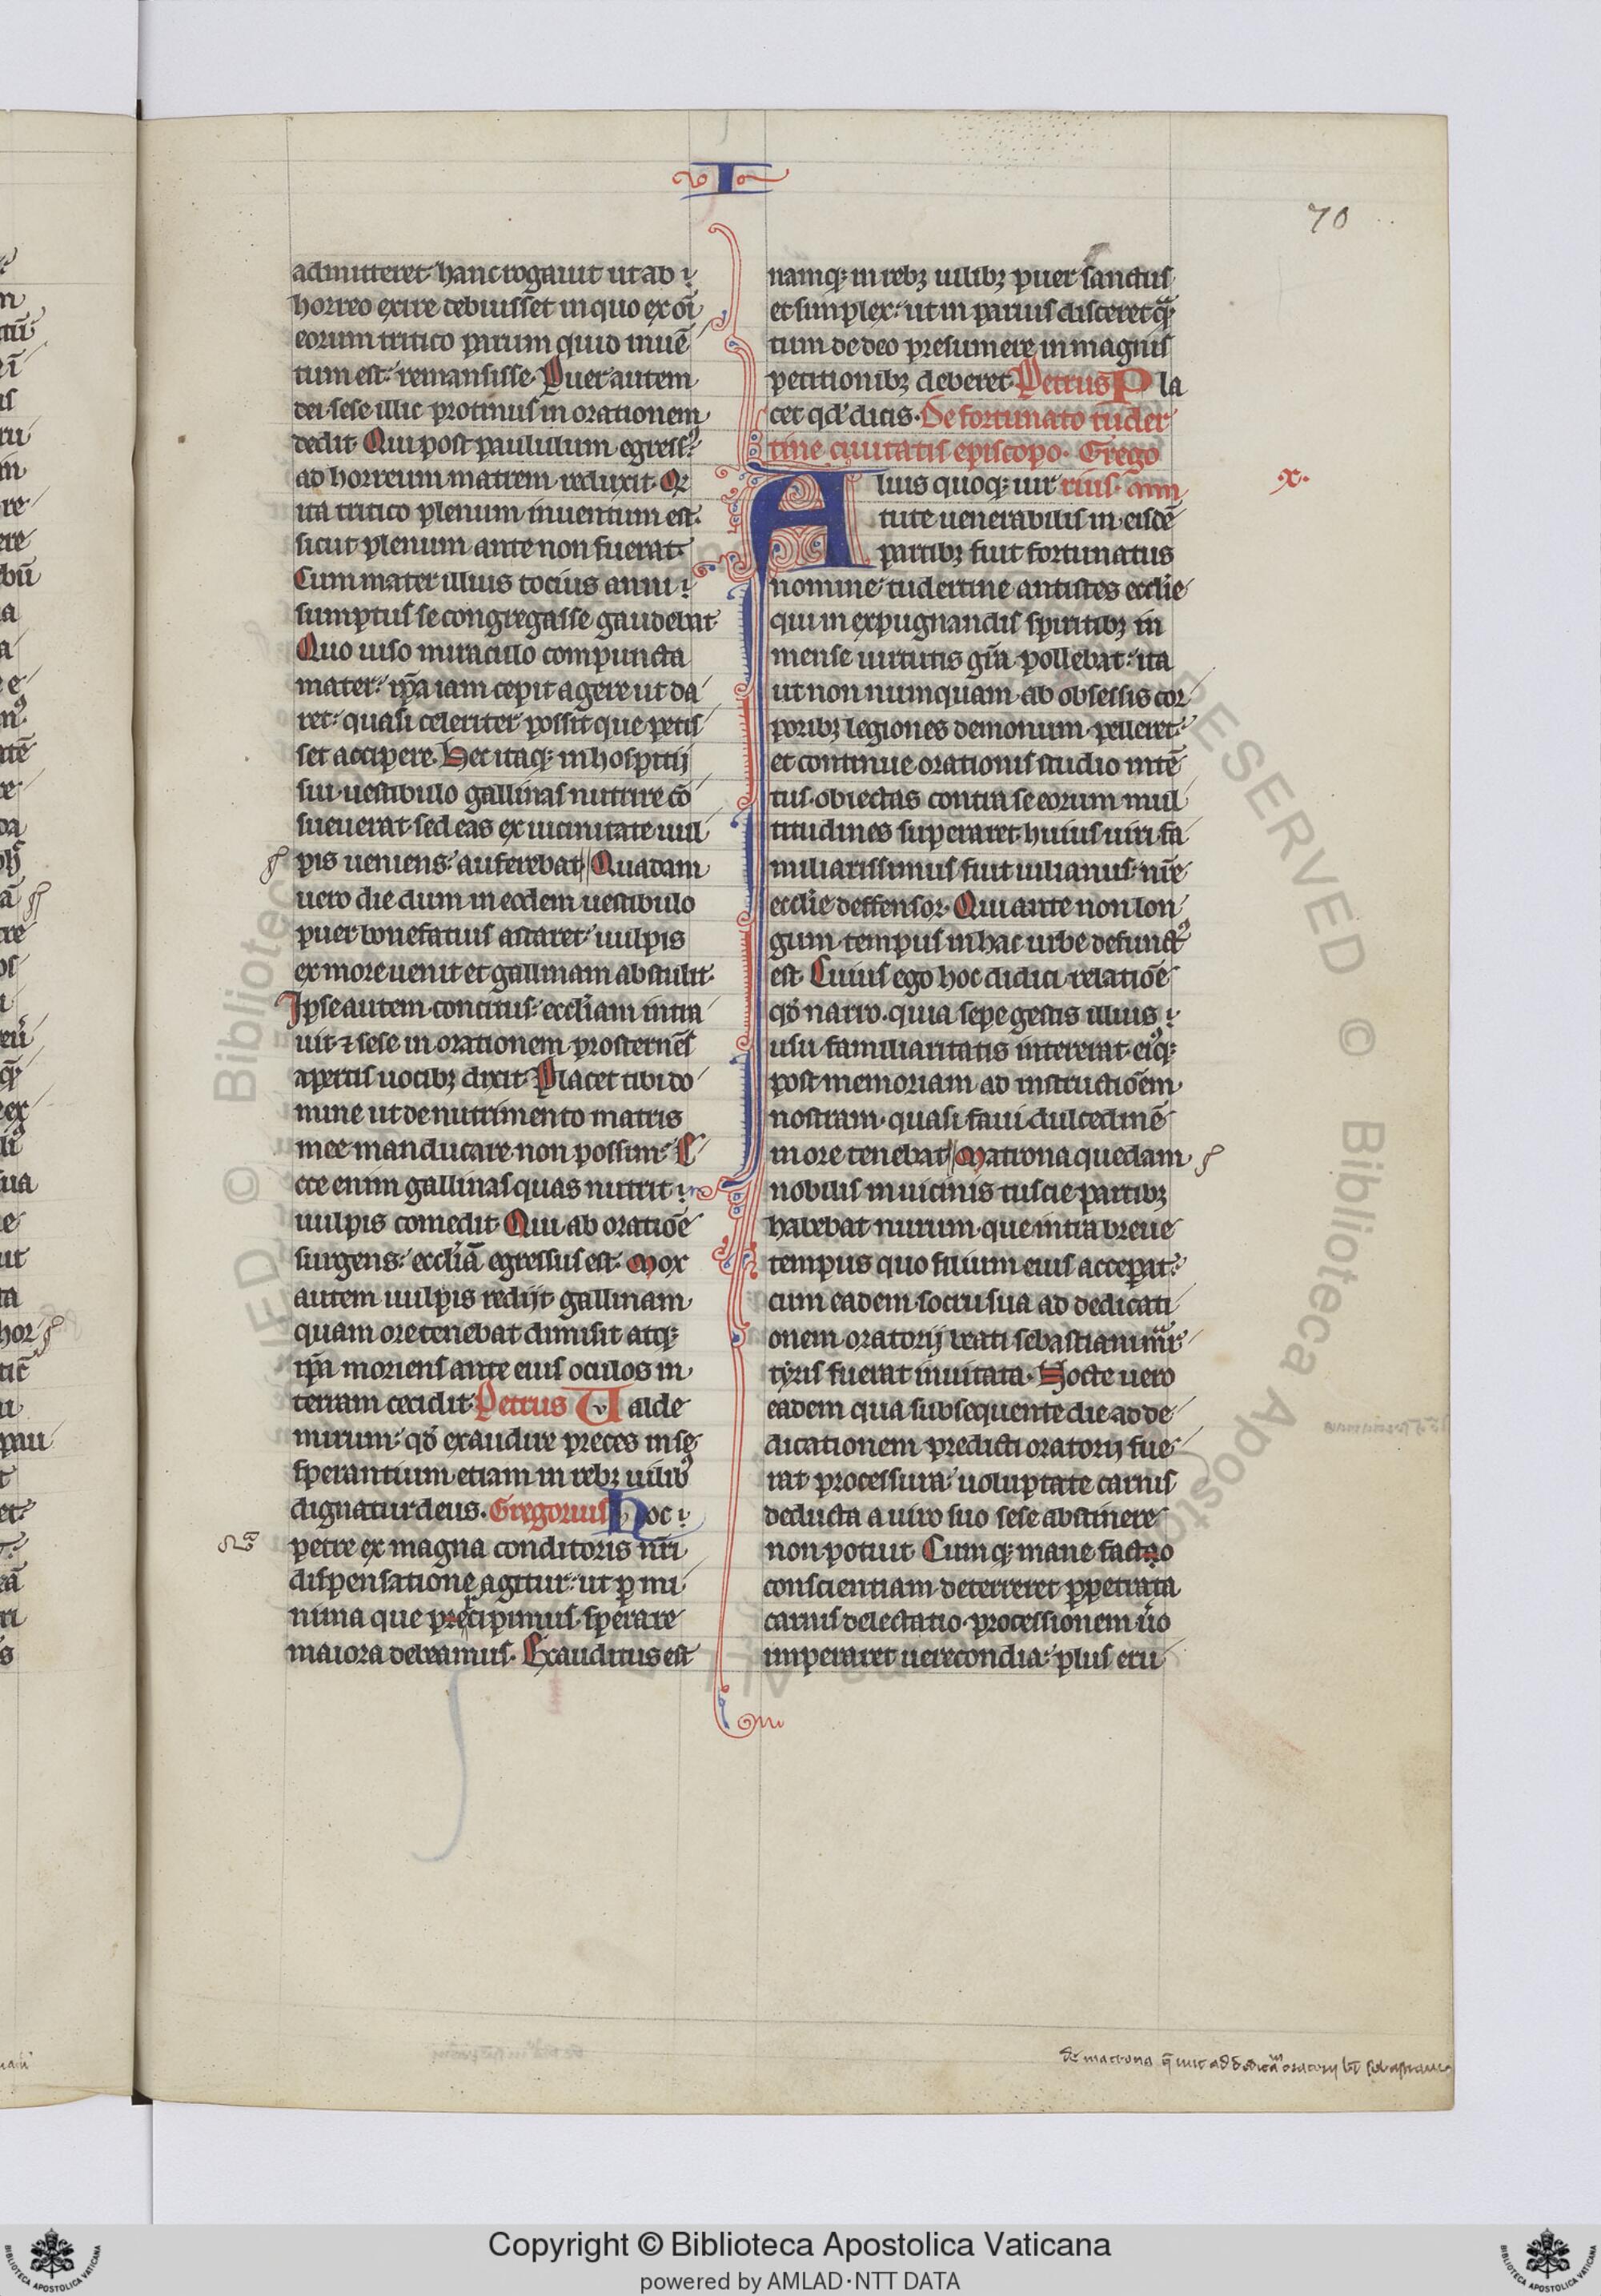 I
70
admitteret hanc rogauit ut ab
horreo exire debuisset in quo ex oı̄
eorum tritico parum quid inuē
tum est remansisse. Puer autem
dei sese illic protinus in orationem
dedit. Qui post paululum egress⁹
ad horreum matrem reduxit. Qd̄
ita tritico plenum inuentum est.
sicut plenum ante non fuerat
Cum mater illius tocius anni
sumptus se congregasse gaudebat
Quo uiso miraculo compuncta
mater ip̄a iam cepit agere ut da
ret quasi celeriter possit que petis
set accipere. Hec itaq; in hospitij
sui uestibulo gallinas nutrire cō
sueuerat sed eas ex uicinitate uul
pis ueniens auferebat. Quadam
uero die dum in eodem uestibulo
puer bonefatius astaret uulpis
ex more uenit et gallinam abstulit.
Ipse autem concitus eccl̄iam intra
uit ⁊ sese in orationem prosternēs
apertis uocibꝫ dixit. Placet tibi do
mine ut de nutrimento matris
mee manducare non possim. E
cce enim gallinas quas nutrit
uulpis comedit. Qui ab oratiōe
surgens eccl̄iā egressus est. Mox
autem uulpis redijt gallinam
quam ore tenebat dimisit atq;
ip̄a moriens ante eius oculos in
terram cecidit. Petrus Ualde
mirum qd̄ exaudire preces in se
sperantium etiam in rebꝫ uilib⁹
dignatur deus. Gregorius Hoc
petre ex magna conditoris nr̄i
dispensatione agitur ut ꝑ mi
nima que precipimus sperare
maiora debeamus. Exauditus est
namq; in rebꝫ uilibꝫ puer sanctus
et simplex ut in paruis disceret qᵃ
tum de deo presumere in magnis
petitionibꝫ deberet. Petrus Pla
cet qd̄ dicis. De fortunato tuder
tine ciuitatis episcopo. Grego
Alius quoq; uir rius. uir
.x.
tute uenerabilis in eisdē
partibꝫ fuit fortunatus
nomine tudertine antistes eccl̄ie
qui in expugnandis spiritibꝫ in
mense uirtutis gr̄a pollebat ita
ut non numquam ab obsessis cor
poribꝫ legiones demonum pelleret
et continue orationis studio intē
tus obiectas contra se eorum mul
titudines superaret huius uiri fa
miliarissimus fuit iulianus nr̄e
eccl̄ie deffensor. Qui ante non lon
gum tempus in hac urbe defunct⁹
est. Cuius ego hoc didici relatiōe
qd̄ narro. quia sepe gestis illius
usu familiaritatis intererat ei⁹q;
post memoriam ad instructiōem
nostram quasi faui dulcedinē
in ore tenebat Matrona quedam
nobilis in uicinis tuscie partibꝫ
habebat nurum que intra breue
tempus quo filium eius acceperat
cum eadem socru sua ad dedicati
onem oratorij beati sebastiani mr̄
tyris fuerat inuitata. Nocte uero
eadem qua subsequente die ad de
dicationem predicti oratorij fue
rat processura uoluptate carnis
deducta a uiro suo sese abstinere
non potuit. Cumq; mane facto
conscientiam deterreret ꝑpetrata
carnis delectatio processionem ūo
imperaret uerecondia plus eru
De matrona q̄ iuit ad dedicat̄m oratorij bt̄i sebastiani
Copyright © Biblioteca Apostolica Vaticana
powered by AMLAD·NTT DATA